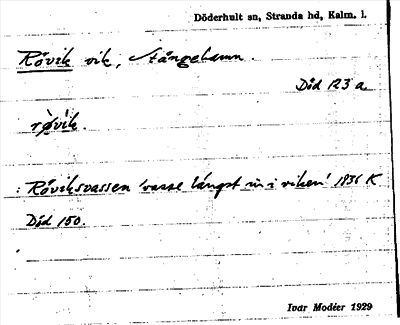 Döderhult sn, Stranda hd, Kalm. l.
Rövik vik, Stångehamn.
Död 123 a
rö̀vìk.
: Röviksvassen 'vasse längst in i viken' 1836 K
Död 150.
Ivar Modéer 1929